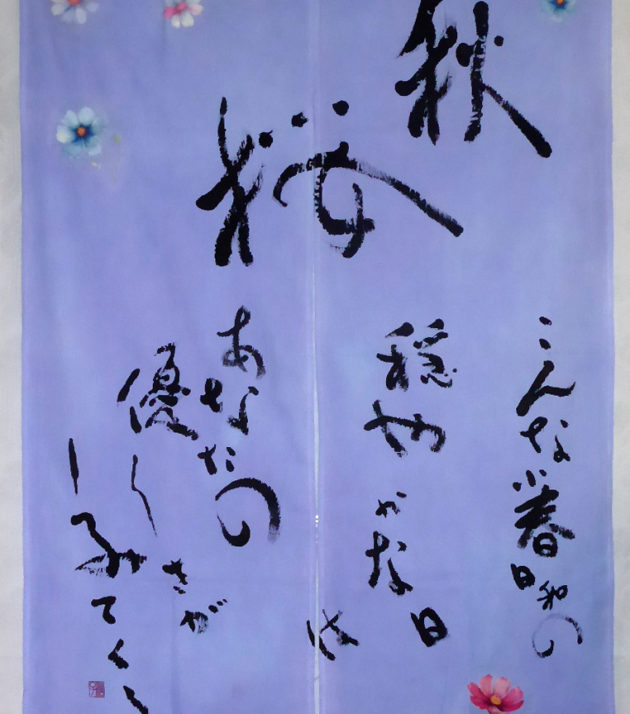 秋桜
こんな小春日和の
穏やかな日は
あなたの
優しさが
しみてく